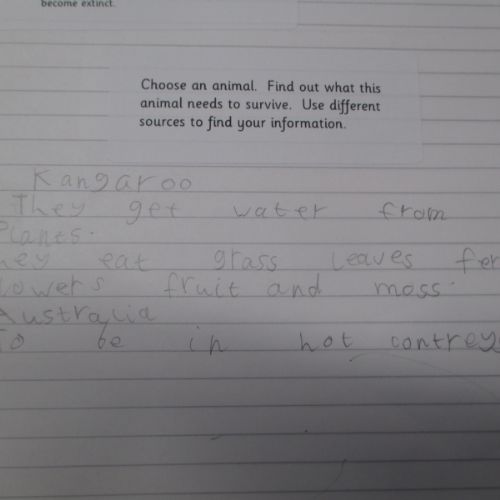 become extinct.
Choose an animal. Find out what this
animal needs to survive. Use different
sources to find your information.
Kangaroo
They get water from
Plants.
hey eat grass leaves fer
lowers fruit and moss.
Australia
To be in hot contreys